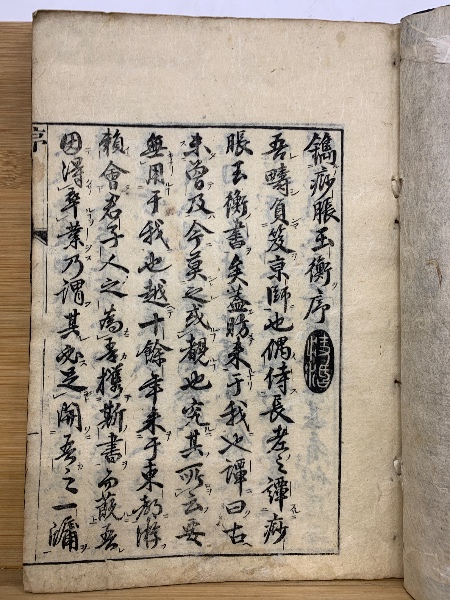 鐫痧脹玉衡序
吾疇負笈京師也偶侍長者之譚痧
脹玉衡書矣蓋昉来于我也譚曰古
未曾及今莫之或覩也究其所云要
無用于我也越十餘年来于東都游
頼會君子人之為吾携斯書而觀吾
因得卒業乃謂其必足開吾之一牖
序